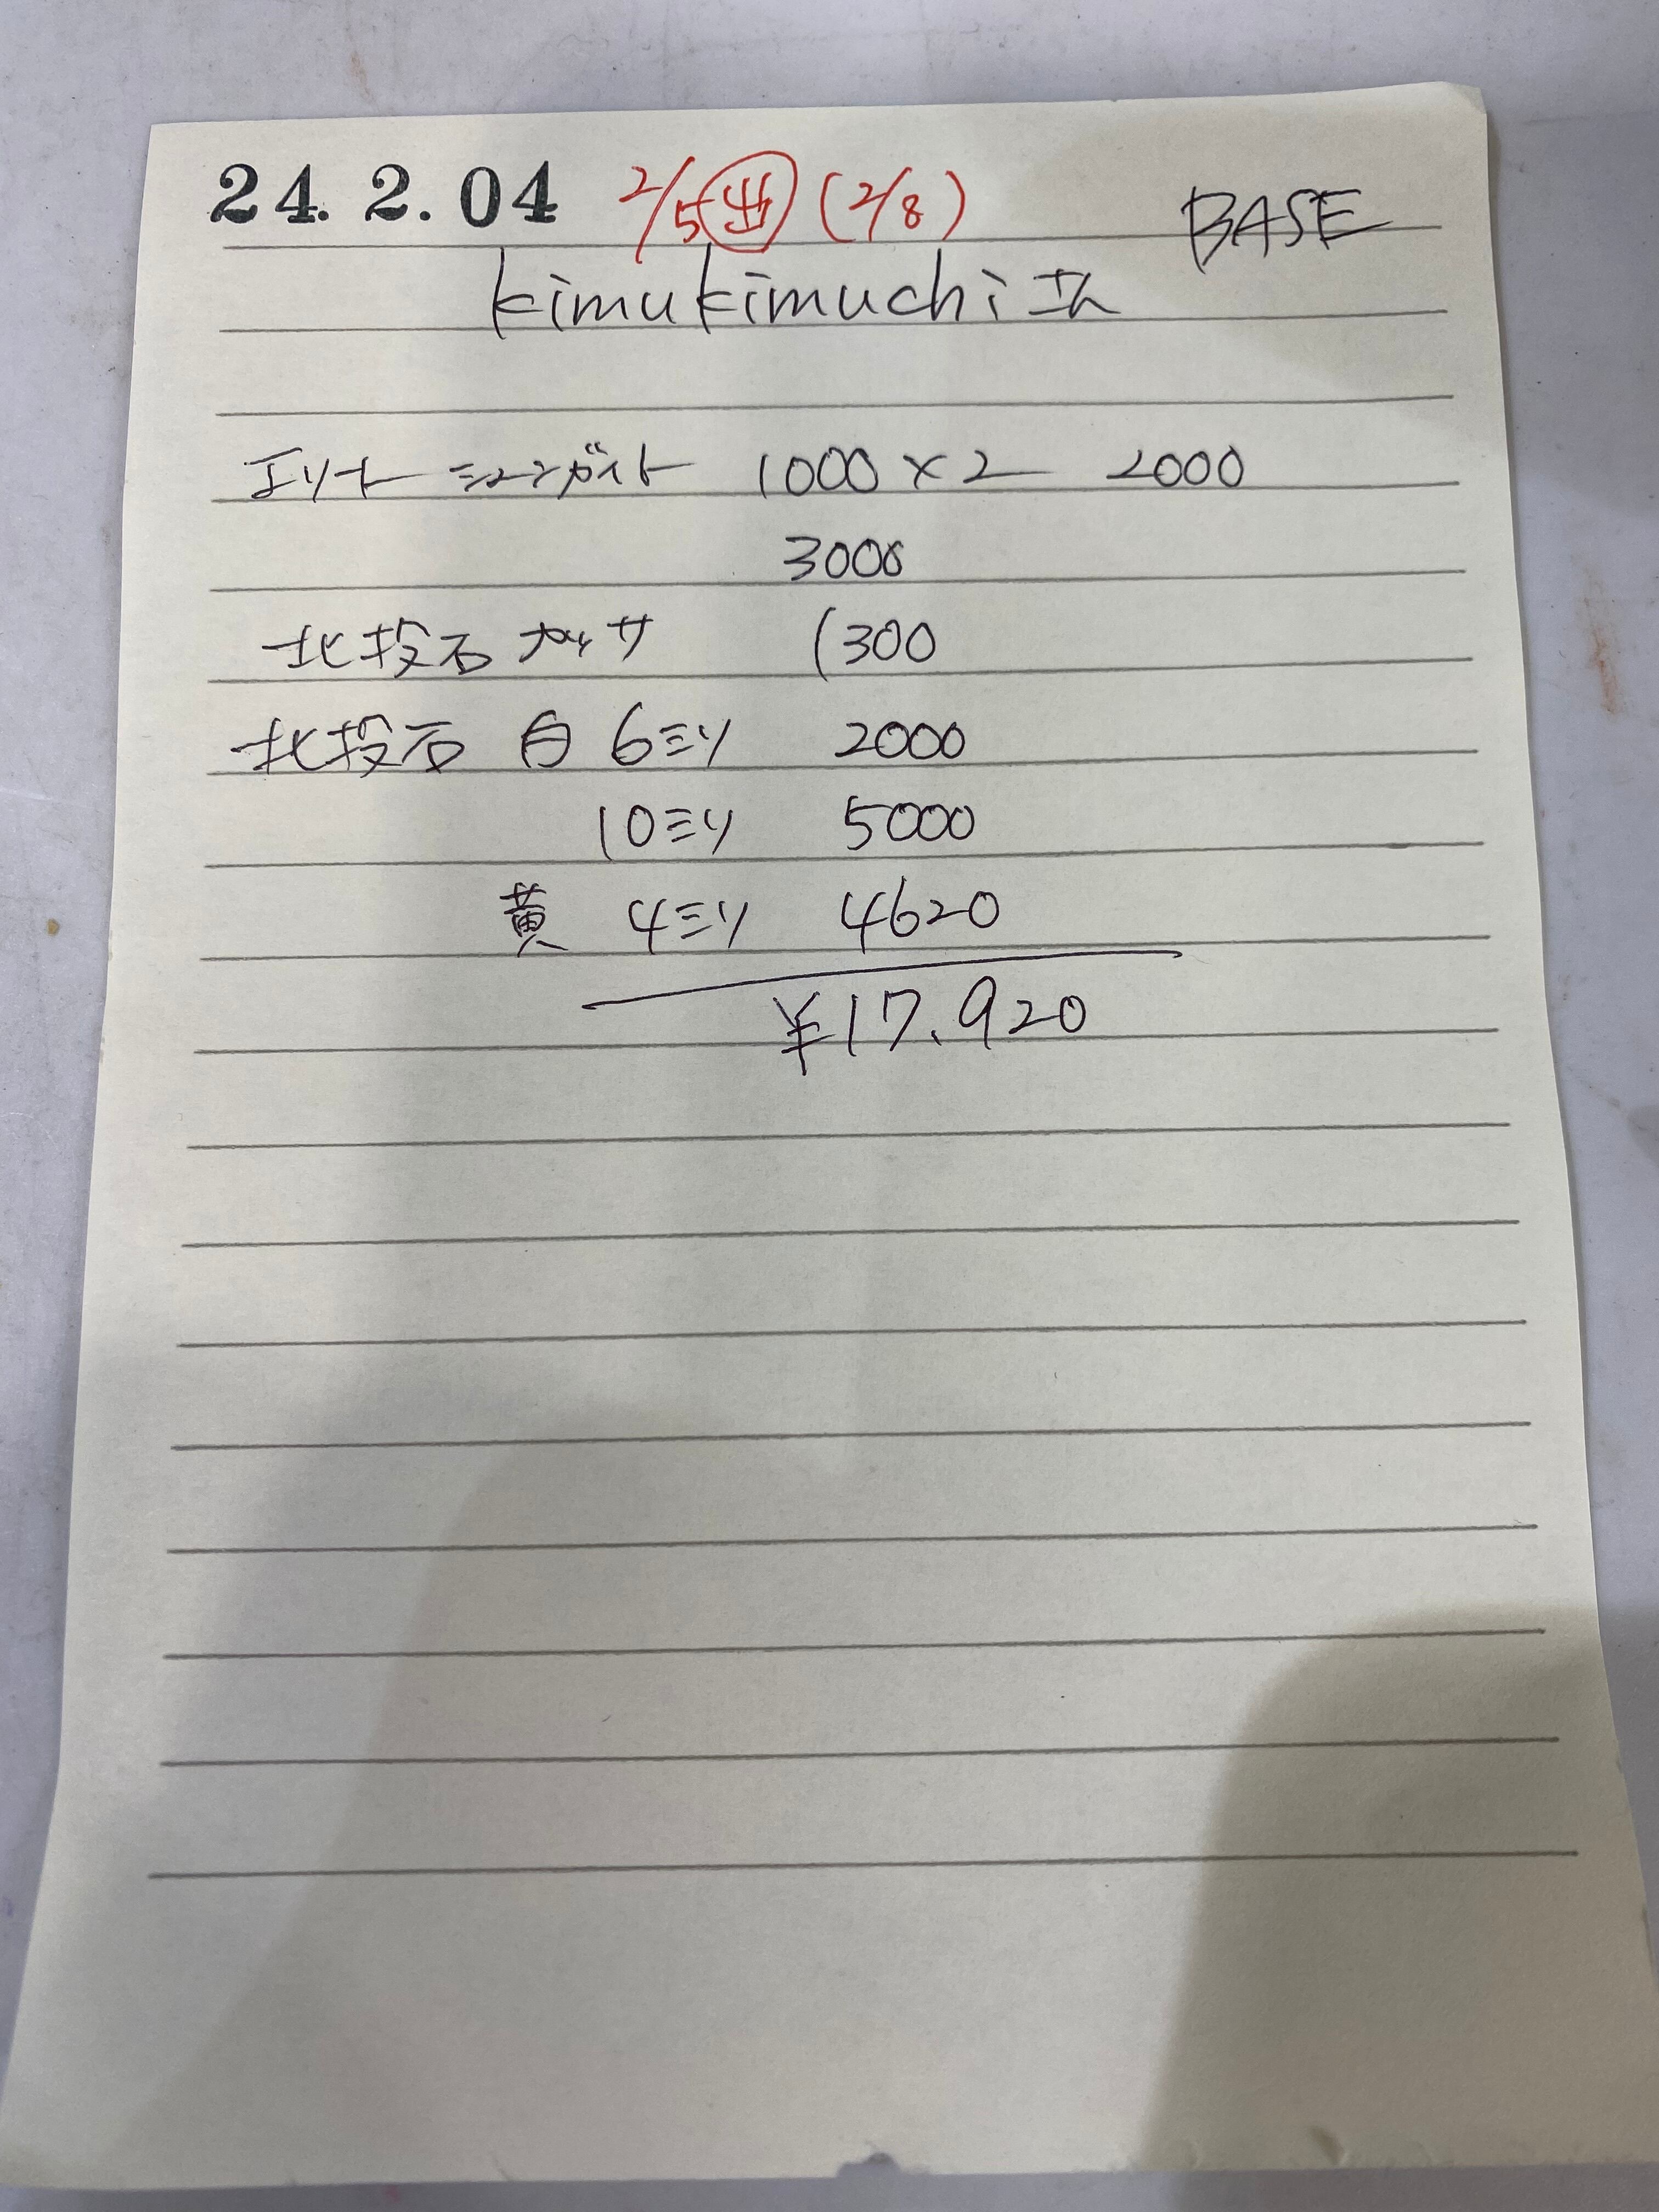 24. 2. 04 2/5 出 (2/8) BASE
kimukimuchi エム
エリート シュンガイト 1000×2 2000
3000
北投石 カッサ 1300
北投石 白 6ミリ 2000
10ミリ 5000
黄 4ミリ 4620
¥17.920